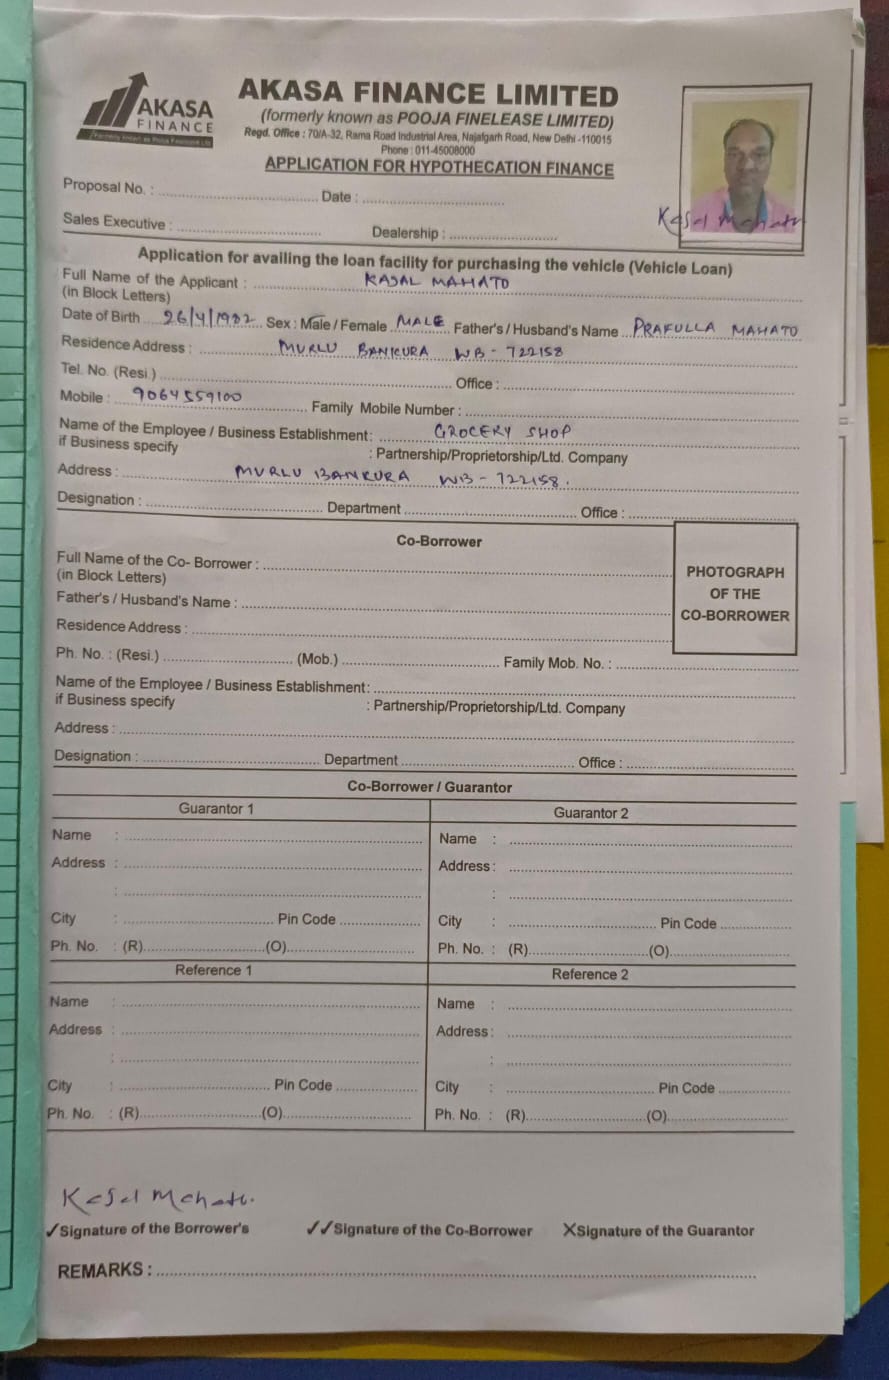 AKASA
FINANCE
Formerly known as Pooja Finelease Ltd.
AKASA FINANCE LIMITED
(formerly known as POOJA FINELEASE LIMITED)
Regd. Office : 70/A-32, Rama Road Industrial Area, Najafgarh Road, New Delhi -110015
Phone : 011-45008000
APPLICATION FOR HYPOTHECATION FINANCE
Proposal No. : Date :
Kajal Mahato
Sales Executive : Dealership :
Application for availing the loan facility for purchasing the vehicle (Vehicle Loan)
Full Name of the Applicant : KAJAL MAHATO
(in Block Letters)
Date of Birth 26/4/1982 Sex : Male / Female MALE Father's / Husband's Name PRAFULLA MAHATO
Residence Address : MURLU BANKURA WB - 722158
Tel. No. (Resi.) Office :
Mobile : 9064559100 Family Mobile Number :
Name of the Employee / Business Establishment : GROCERY SHOP
if Business specify : Partnership/Proprietorship/Ltd. Company
Address : MURLU BANKURA WB - 722158.
Designation : Department Office :
Co-Borrower
Full Name of the Co- Borrower :
(in Block Letters)
PHOTOGRAPH
OF THE
CO-BORROWER
Father's / Husband's Name :
Residence Address :
Ph. No. : (Resi.) (Mob.) Family Mob. No. :
Name of the Employee / Business Establishment :
if Business specify : Partnership/Proprietorship/Ltd. Company
Address :
Designation : Department Office :
Co-Borrower / Guarantor
Guarantor 1 Guarantor 2
Name : Name :
Address : Address :
: :
City : Pin Code City : Pin Code
Ph. No. : (R) (O) Ph. No. : (R) (O)
Reference 1 Reference 2
Name : Name :
Address : Address :
: :
City : Pin Code City : Pin Code
Ph. No. : (R) (O) Ph. No. : (R) (O)
Kajal Mahato.
✓Signature of the Borrower's ✓✓Signature of the Co-Borrower XSignature of the Guarantor
REMARKS :